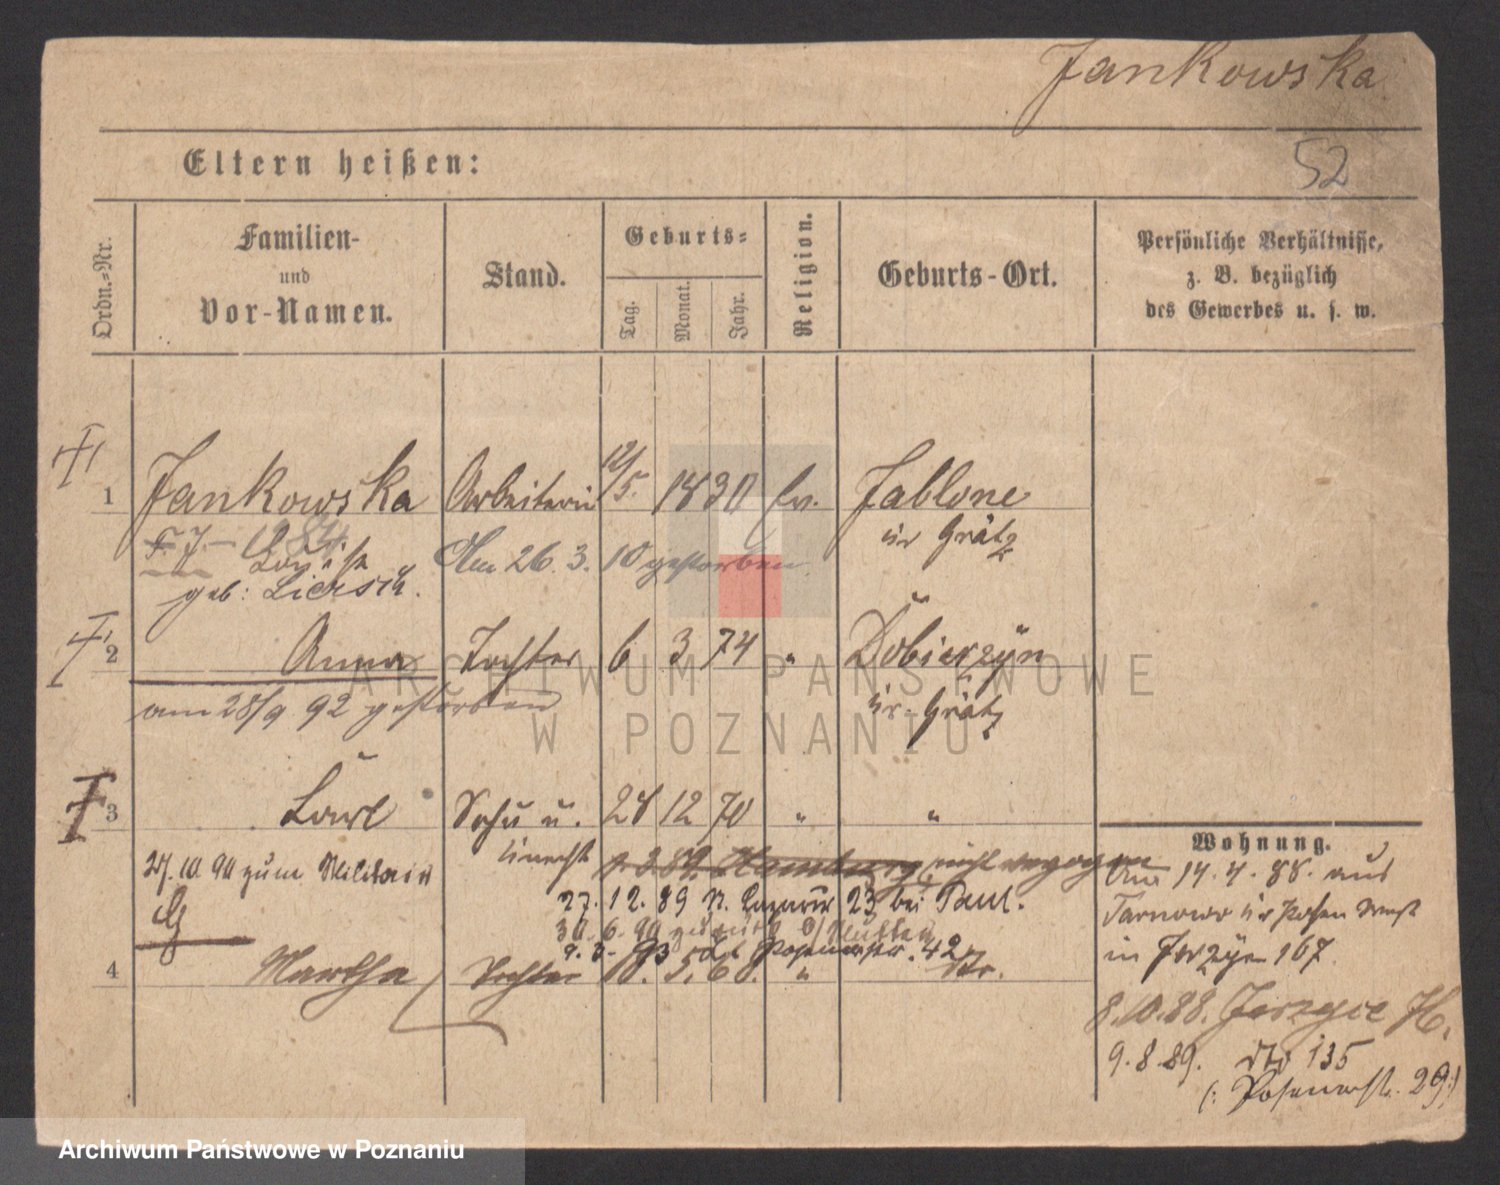 Jankowska
52
Eltern heißen:
Ordn.-Nr.
Familien-
und
Vor-Namen.
Stand.
Geburts-
Tag.
Monat.
Jahr.
Religion.
Geburts-Ort.
Persönliche Verhältnisse,
z. B. bezüglich
des Gewerbes u. s. w.
1 Jankowska Arbeiterin 12/5. 1830 Ev. Jablone
Kr Grätz
Am 26. 3. 10 gestorben
geb:
2 Anna Tochter 6 3 74 " Dobierzyn
Kr. Grätz
am 28/9 92 gestorben
3 Karl Sohn 28 12 70 " "
27. 10. 90 zum Militair
27. 12. 89 St. Lazarus 23 bei Paul.
4 Martha Tochter
Wohnung.
Am 14. 4. 88. aus
Tarnowo Kr Posen West
in Jerzyce 167.
8. 10. 88. Jerzyce
9. 8. 89. dto 135
(: Posenerstr. 29:)
ARCHIWUM PAŃSTWOWE
W POZNANIU
Archiwum Państwowe w Poznaniu